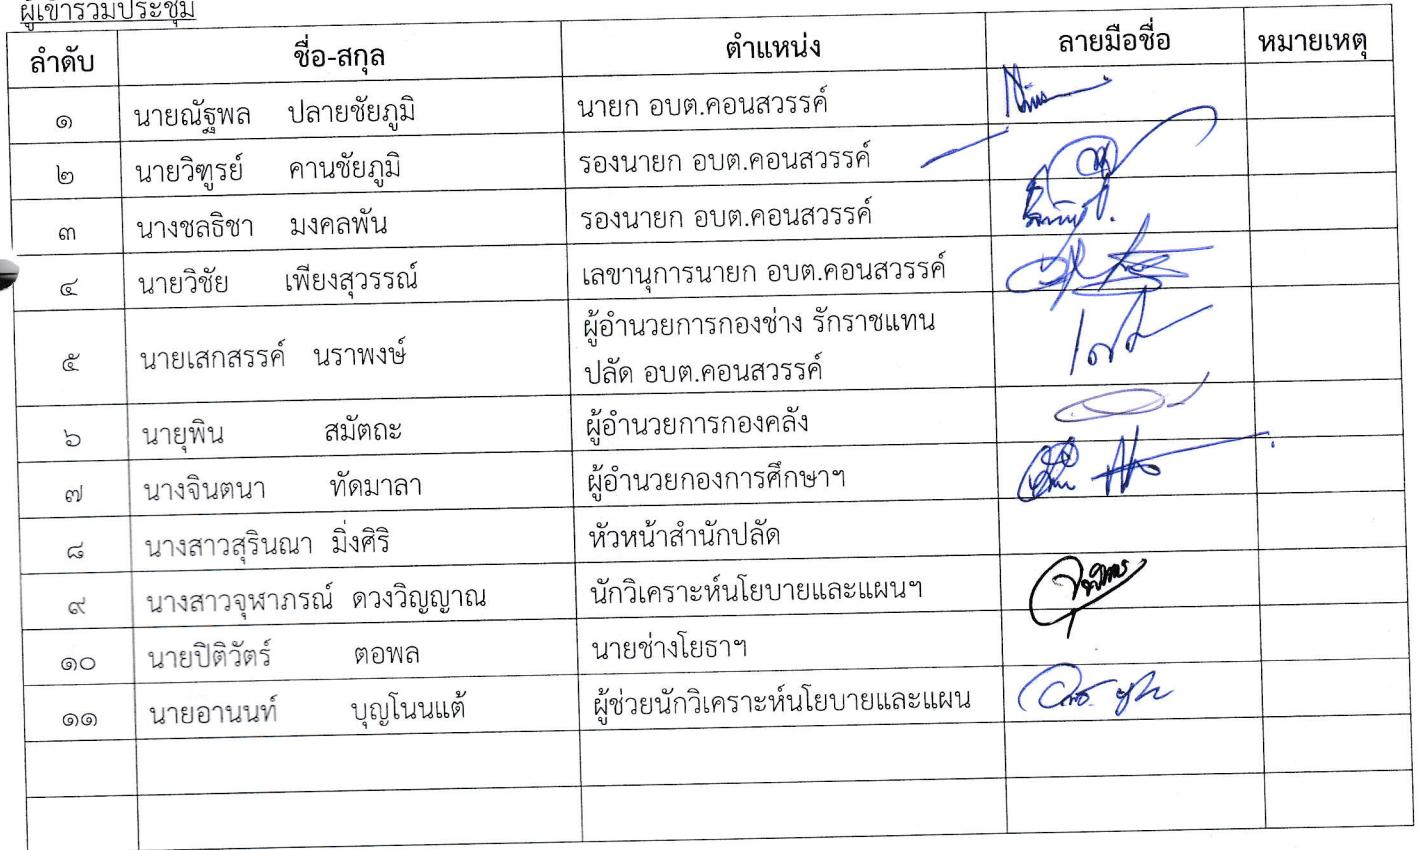 ผู้เข้าร่วมประชุม
ลำดับ ชื่อ-สกุล ตำแหน่ง ลายมือชื่อ หมายเหตุ
๑ นายณัฐพล ปลายชัยภูมิ นายก อบต.คอนสวรรค์
๒ นายวิฑูรย์ คานชัยภูมิ รองนายก อบต.คอนสวรรค์
๓ นางชลธิชา มงคลพัน รองนายก อบต.คอนสวรรค์
๔ นายวิชัย เพียงสุวรรณ์ เลขานุการนายก อบต.คอนสวรรค์
๕ นายเสกสรรค์ นราพงษ์ ผู้อำนวยการกองช่าง รักราชแทน
ปลัด อบต.คอนสวรรค์
๖ นายุพิน สมัตถะ ผู้อำนวยการกองคลัง
๗ นางจินตนา ทัดมาลา ผู้อำนวยกองการศึกษาฯ
๘ นางสาวสุรินณา มิ่งศิริ หัวหน้าสำนักปลัด
๙ นางสาวจุฬาภรณ์ ดวงวิญญาณ นักวิเคราะห์นโยบายและแผนฯ
๑๐ นายปิติวัตร์ ตอพล นายช่างโยธาฯ
๑๑ นายอานนท์ บุญโนนแต้ ผู้ช่วยนักวิเคราะห์นโยบายและแผน